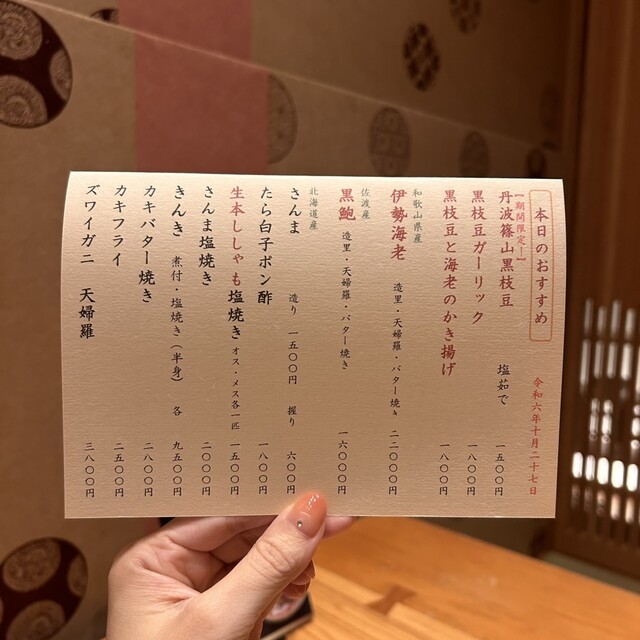 本日のおすすめ
令和六年十月二十七日
【期間限定!】
丹波篠山黒枝豆 塩茹で 一五〇〇円
黒枝豆ガーリック 一八〇〇円
黒枝豆と海老のかき揚げ 一八〇〇円
和歌山県産
伊勢海老 造里・天婦羅・バター焼き 二二〇〇〇円
佐渡産
黒鮑 造里・天婦羅・バター焼き 一六〇〇〇円
北海道産
さんま 造り 一五〇〇円 握り 六〇〇円
たら白子ポン酢 一八〇〇円
生本ししゃも塩焼き オス・メス各一匹 一五〇〇円
さんま塩焼き 二〇〇〇円
きんき 煮付・塩焼き(半身) 各 九五〇〇円
カキバター焼き 二八〇〇円
カキフライ 二五〇〇円
ズワイガニ 天婦羅 三八〇〇円